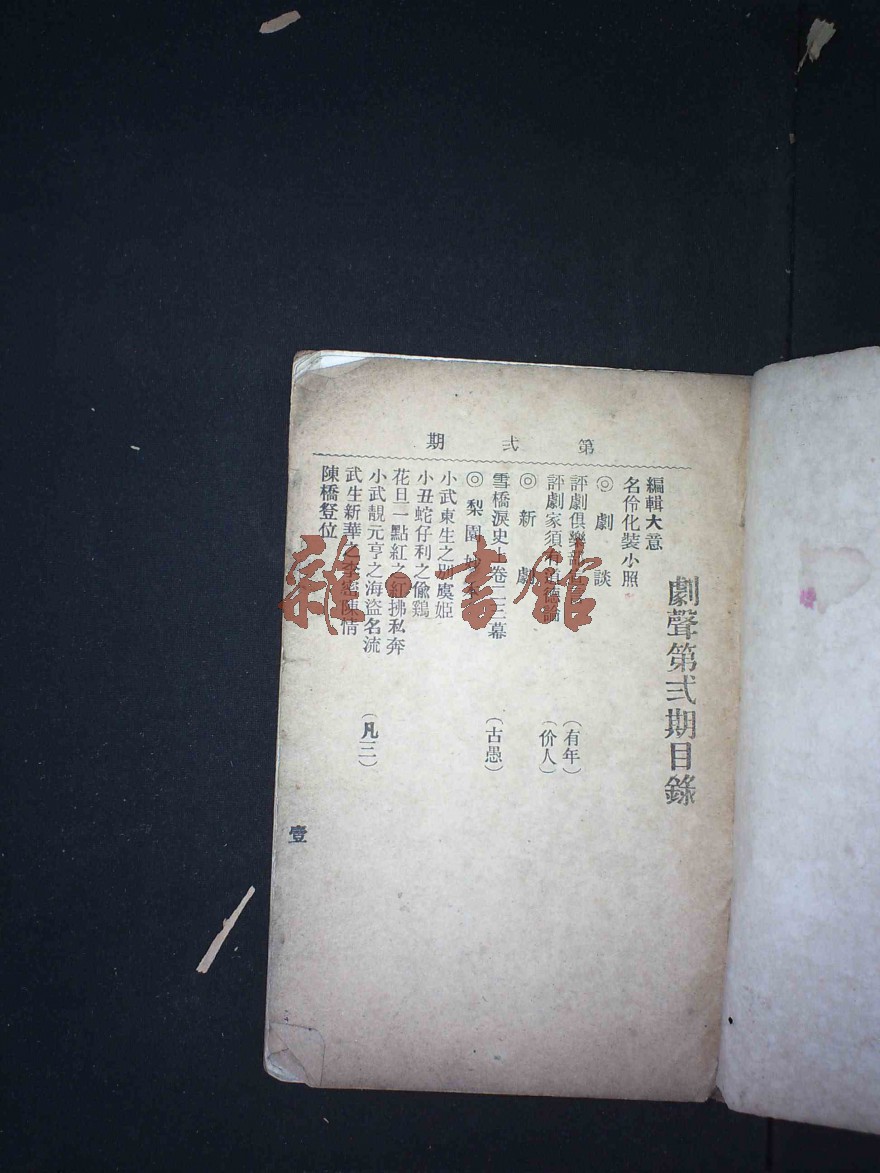 第弍期
劇聲第弍期目錄
編輯大意
名伶化裝小照
◎劇談
評劇俱樂部 (有年)
評劇家須有道德論 (价人)
◎新劇
雪橋淚史上卷二三幕 (古愚)
◎梨園
小武東生之別虞姬
小丑蛇仔利之偸鷄
花旦一點紅之紅拂私奔
小武靚元亨之海盜名流 (凡三)
武生新華之李密陳情
陳橋登位
壹
雜·書館